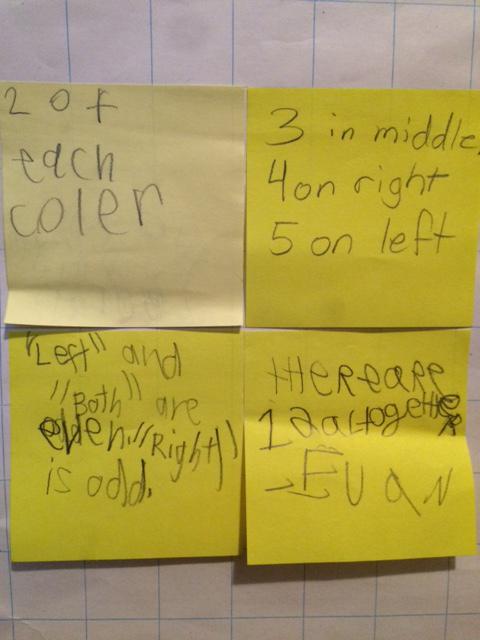 2 of
each
coler
3 in middle,
4 on right
5 on left
"Left" and
"Both" are
even. "Right"
is odd.
thereare
12altogether
-Evan